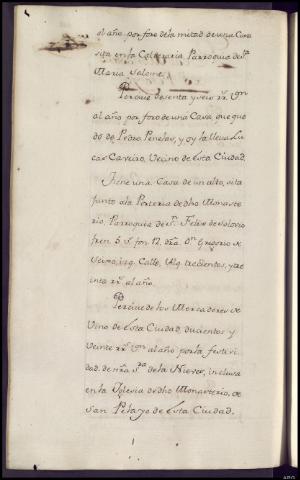 al año, por foro de la metad de una Casa
sita en la Caldereria, Parroquia de S.ta
Maria Salome,
Percive sesenta y seis r.s v.on
al año por foro de una Casa, que que
dó de Pedro Penelas, y oy la lleva Lu
cas Carvero, Vecino de Esta Ciudad.
Tiene una Casa de un alto, sita
junto a la Porteria de dho Monaste
rio, Parroquia de S.n Felix de Solovio
fren. 5 v.s fon. 12, dra. D.n Gregorio
izq. Calle, Alq. trecientos, y tre
inta r.s al año.
Percive de los Mercaderes de
Vino de Esta Ciudad, ducientos y
Veinte r.s v.on al año por la festivi
dad de nra S.ra de la Nieves, inclusa
en la Iglesia de dho Monasterio, de
San Pelayo de Esta Ciudad.